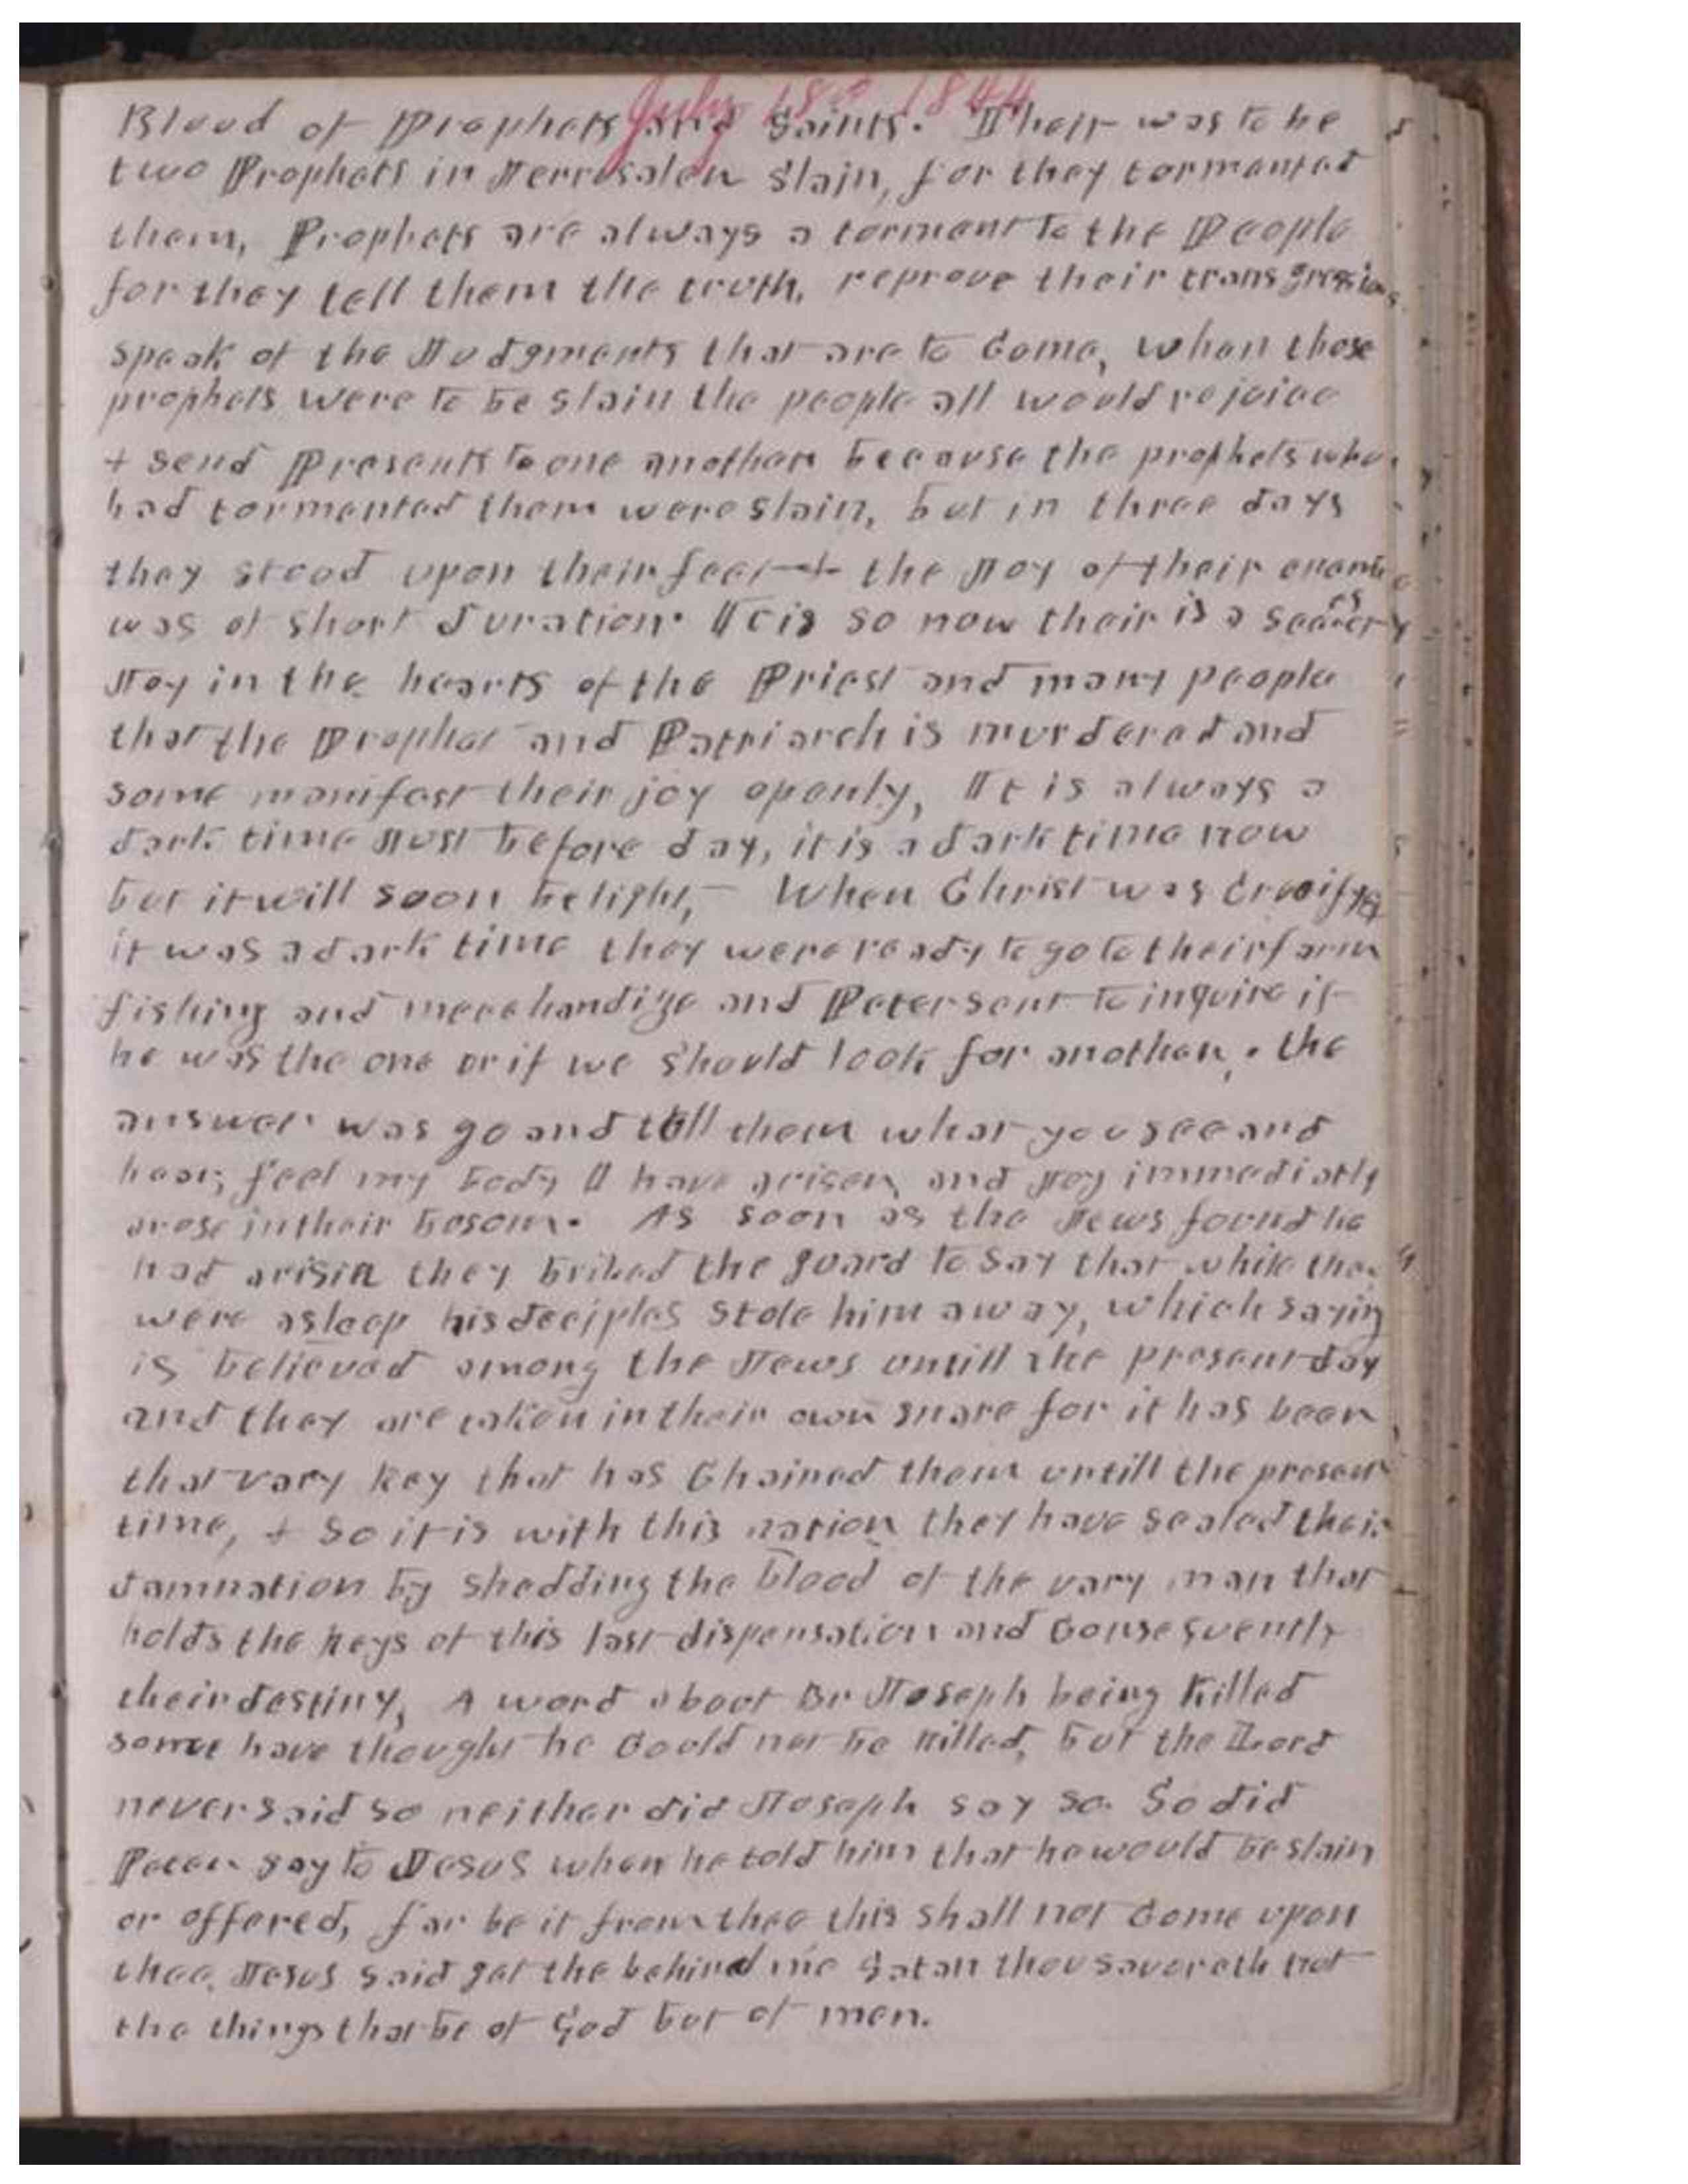 July 18th 1844
Blood of Prophets and Saints. Their was to be
two Prophets in Jerrusalem Slain, for they tormented
them, Prophets are always a torment to the People
for they tell them the truth, reprove their transgressions
speak of the Judgments that are to Come, when those
prophets were to be slain the people all would rejoice
+ send Presents to one another because the prophets who
had tormented them were slain, but in three days
they stood upon their feet + the Joy of their enemies
was of short duration. It is so now their is a secret
Joy in the hearts of the Priest and many people
that the Prophet and Patriarch is murdered and
some manifest their joy openly, It is always a
dark time Just before day, it is a dark time now
but it will soon be light, When Christ was Crucifyed
it was a dark time they were ready to go to their farm
fishing and merchandize and Peter sent to inquire if
he was the one or if we should look for another, . the
answer was go and tell them what you see and
hear, feel my body I have arisen and Joy immediatly
arose in their bosom. As soon as the Jews found he
had arisin they bribed the guard to say that while they
were asleep his deciples stole him away, which saying
is believed among the Jews untill the present day
and they are taken in their own snare for it has been
that vary key that has Chained them untill the present
time, + so it is with this nation they have sealed their
damnation by shedding the blood of the vary man that
holds the keys of this last dispensation and Consequently
their destiny, A word about Br Joseph being Killed
some have thought he Could not be Killed, but the Lord
never said so neither did Joseph say so. So did
Peter say to Jesus when he told him that he would be slain
or offered, far be it from thee this shall not Come upon
thee. Jesus said get the behind me Satan thou savoreth not
the things that be of God but of men.